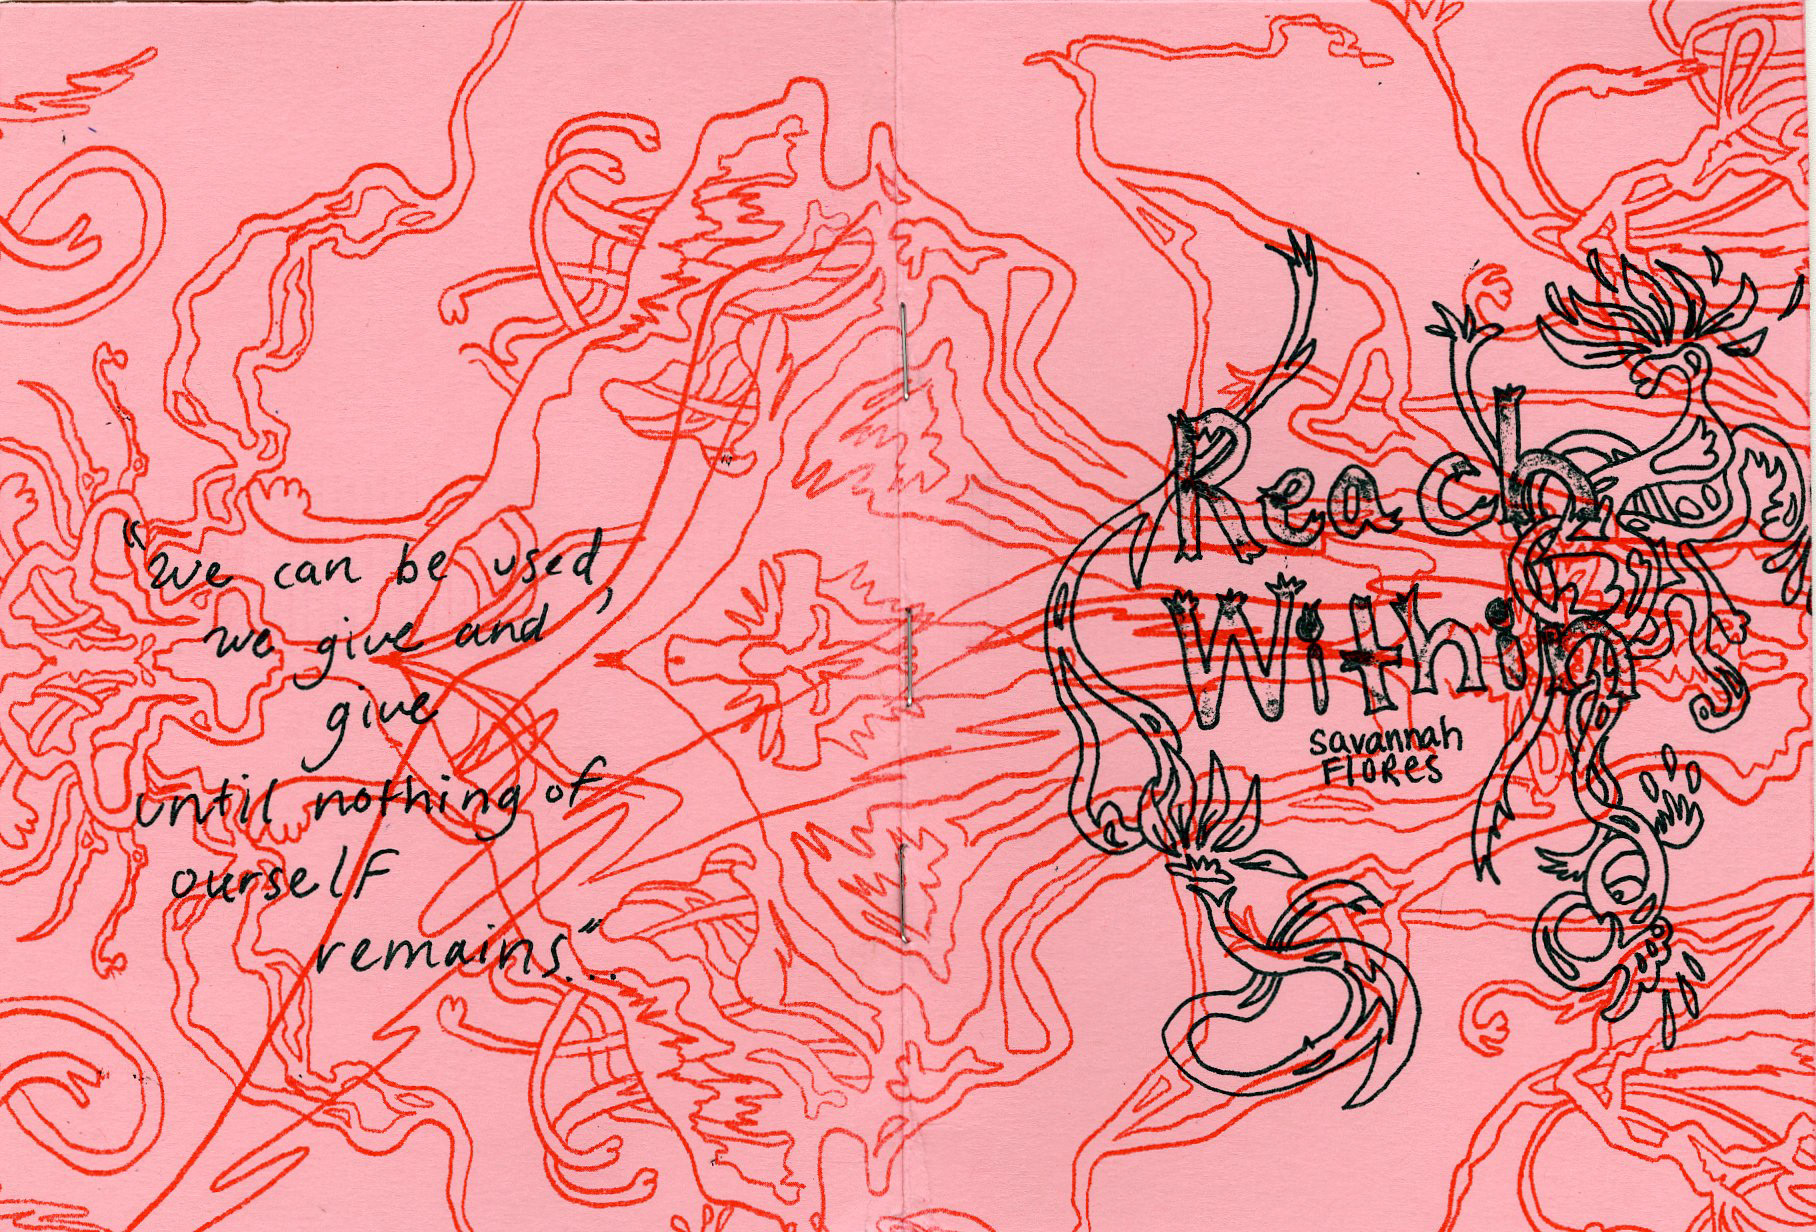 "we can be used,
we give and
give
until nothing of
ourself
remains..."
Reach
Within
Savannah
Flores